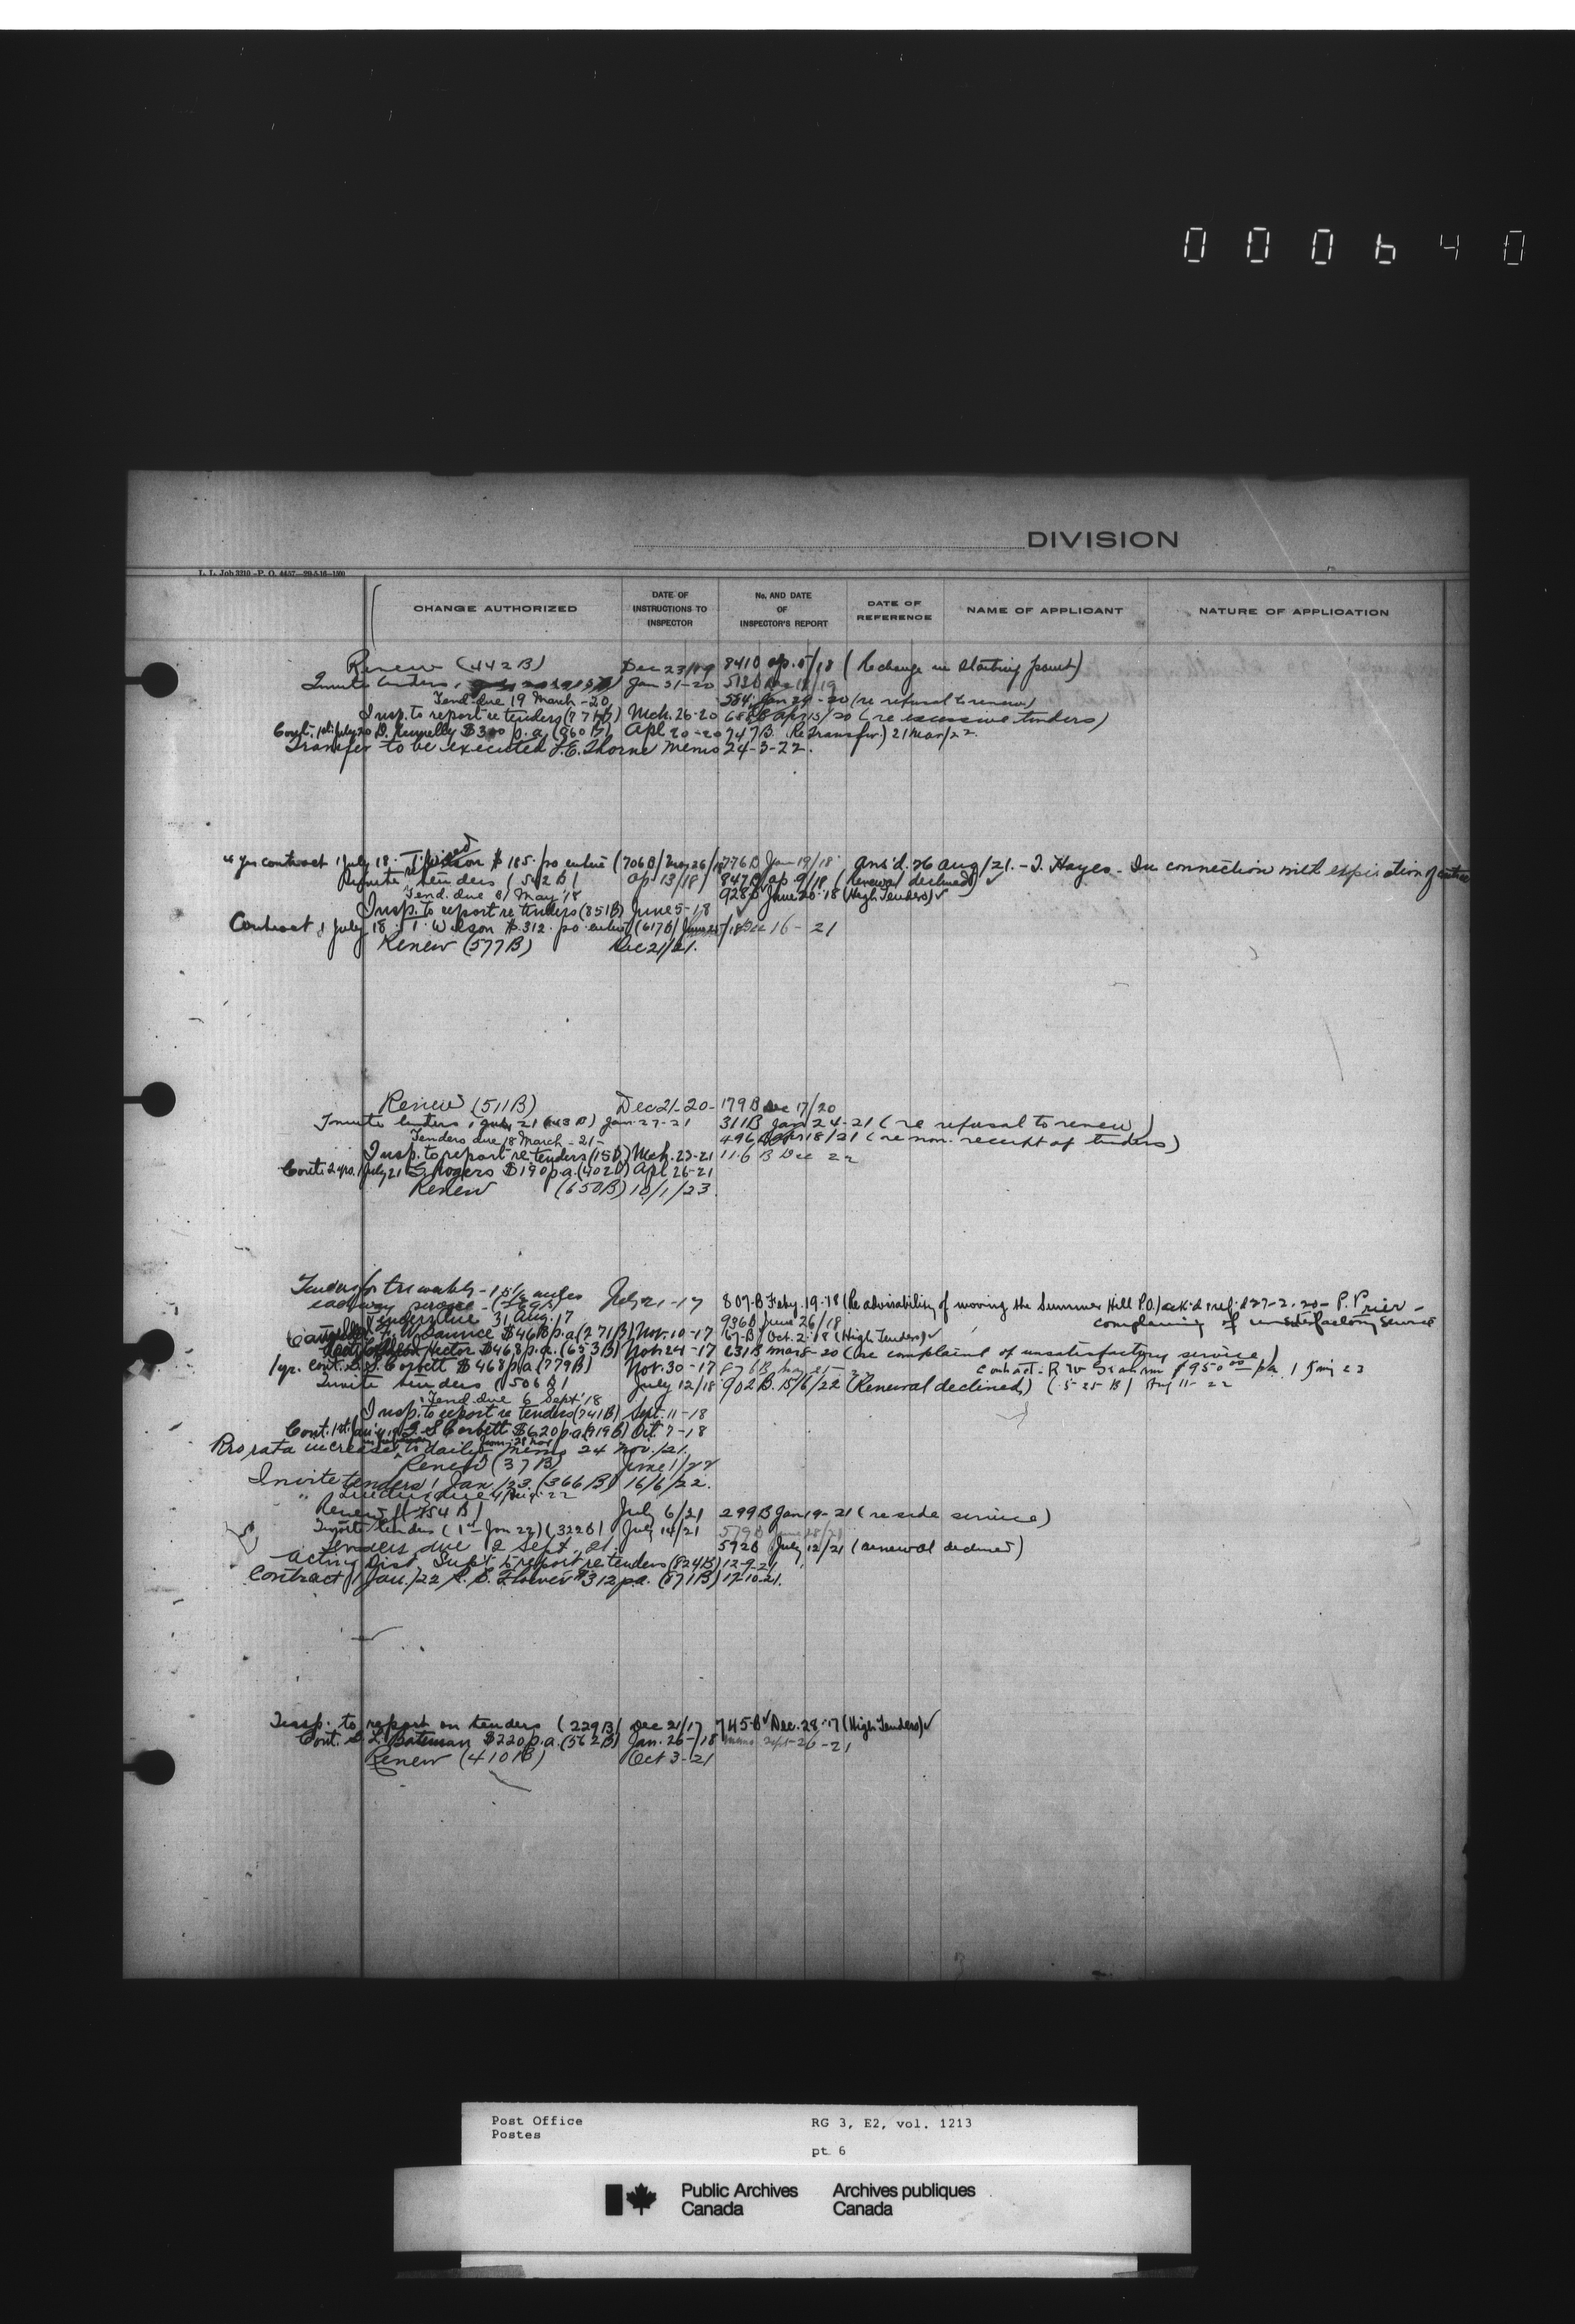 000640
DIVISION
L. L. Job 3210—P. O. 4457—29-5-16—1500
CHANGE AUTHORIZED
DATE OF INSTRUCTIONS TO INSPECTOR
No. AND DATE OF INSPECTOR'S REPORT
DATE OF REFERENCE
NAME OF APPLICANT
NATURE OF APPLICATION
Renew (442B) Dec 23/19 841 ap. 5/18 (Re change in starting point)
Invite tenders, Jan 31-20 512B
Tend. due 19 March-20 554 Jan 29-20 (re refusal to renew)
Insp. to report re tenders (77B) Mch. 26-20 Apr 13/20 (re excessive tenders)
Cont. 1st July 20 B. Kennelly $300 p.a. (860B) Apl 20-20 747B (Re Transfer) 21 Mar/22
Transfer to be executed J.E. Thorne memo 24-3-22.
4 yrs contract 1 July 18. T. Wilson $185. (706B) 26/ 776B Jan 19/18 Ans'd. 26 Aug/21. - J. Hayes. In connection with expiration of
Invite tenders (542B) ap 13/18 847B ap 9/18 (renewal declined) ✓
Tend. due 8 May '18 928B June 20-18 (High Tenders) ✓
Insp. to report re tenders (851B) June 5-18
Contract 1 July 18. T. Wilson $312. (617B) /18 Dec 16-21
Renew (577B) Dec 21/21.
Renew (511B) Dec 21-20- 179B Dec 17/20
Invite tenders, 1 July 21 Jan-27-21 311B Jan 24-21 (re refusal to renew)
Tenders due 18 March-21- 496 Mar 18/21 (re non. receipt of tenders)
Insp. to report re tenders (15D) Mch. 23-21 116B Dec 22
Cont. 2 yrs. 1 July 21 G Rogers $190 p.a. (402D) Apl 26-21
Renew (650B) 10/1/23.
Tenders for tri weekly - 15½ miles July 21-17 807-B Feby. 19-18 (Re advisability of moving the Summer Hill P.O.) ack'd & ref'd 27-2-20 - P. Prier -
each way service - 936B June 26/18 complaining of unsatisfactory service
Tenders due 31 Aug. 17 67-B Oct. 2-18 (High Tenders) ✓
$468 p.a. (271B) Nov. 10-17
Hector $468 p.a. (653B) Nov. 24-17 631B Mar 8-20 (re complaint of unsatisfactory service)
1 yr. cont. G. S. Corbett $468 p.a. (779B) Nov. 30-17 876B Contract - R W Graham $950.00 p.a. 1 Jan 23
Invite tenders (506B) July 12/18 902B. 15/6/22 (Renewal declined) (525B) Aug 11-22
Tend. due 6 Sept '18
Insp. to report re tenders (741B) Sept. 11-18
Cont. 1st Jan'y 19 G. S. Corbett $620 p.a. (919B) Oct. 7-18
Pro rata increase to daily memo 24 Nov./21.
Renew (37B) June 1/22
Invite tenders 1 Jan/23. (366B) 16/6/22.
" Tenders due 4/Aug. 22
Renew (154B) July 6/21 299B Jan 19-21 (re side service)
Invite tenders (1st Jan 22) (322B) July 14/21 579B June 28/21
Tenders due 2 Sept. 21. 592B July 12/21 (renewal declined)
Acting Dist. Supt. to report re tenders (824B) 12-9-21
Contract 1 Jan./22 S. Flower $312 p.a. (871B) 17-10-21.
Insp. to report on tenders (229B) Dec 21/17 745-B ✓ Dec. 28-17 (High Tenders) ✓
Cont. S. L. Bateman $220 p.a. (562B) Jan. 26-/18 memo Sept-26-21
Renew (410B) Oct 3-21
Post Office
Postes
RG 3, E2, vol. 1213
pt 6
Public Archives Canada
Archives publiques Canada